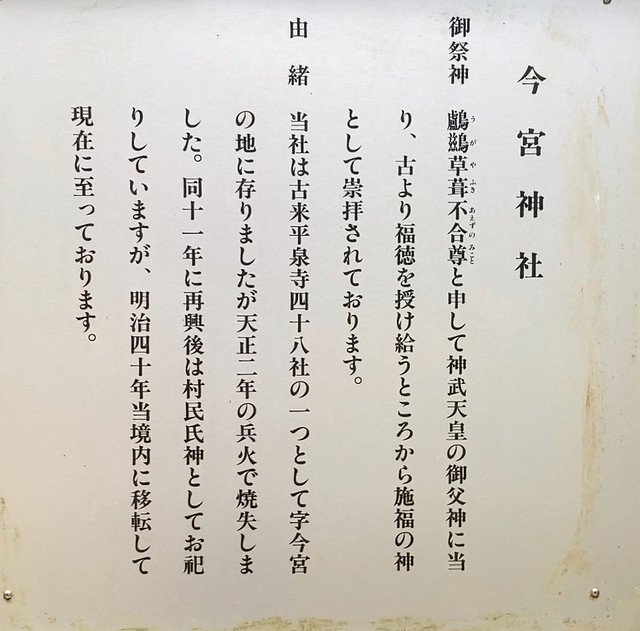 今宮神社
御祭神 鸕鷀草葺不合尊と申して神武天皇の御父神に当
り、古より福徳を授け給うところから施福の神
として崇拝されております。
由緒 当社は古来平泉寺四十八社の一つとして字今宮
の地に存りましたが天正二年の兵火で焼失しま
した。同十一年に再興後は村民氏神としてお祀
りしていますが、明治四十年当境内に移転して
現在に至っております。
うがやふきあえずのみこと